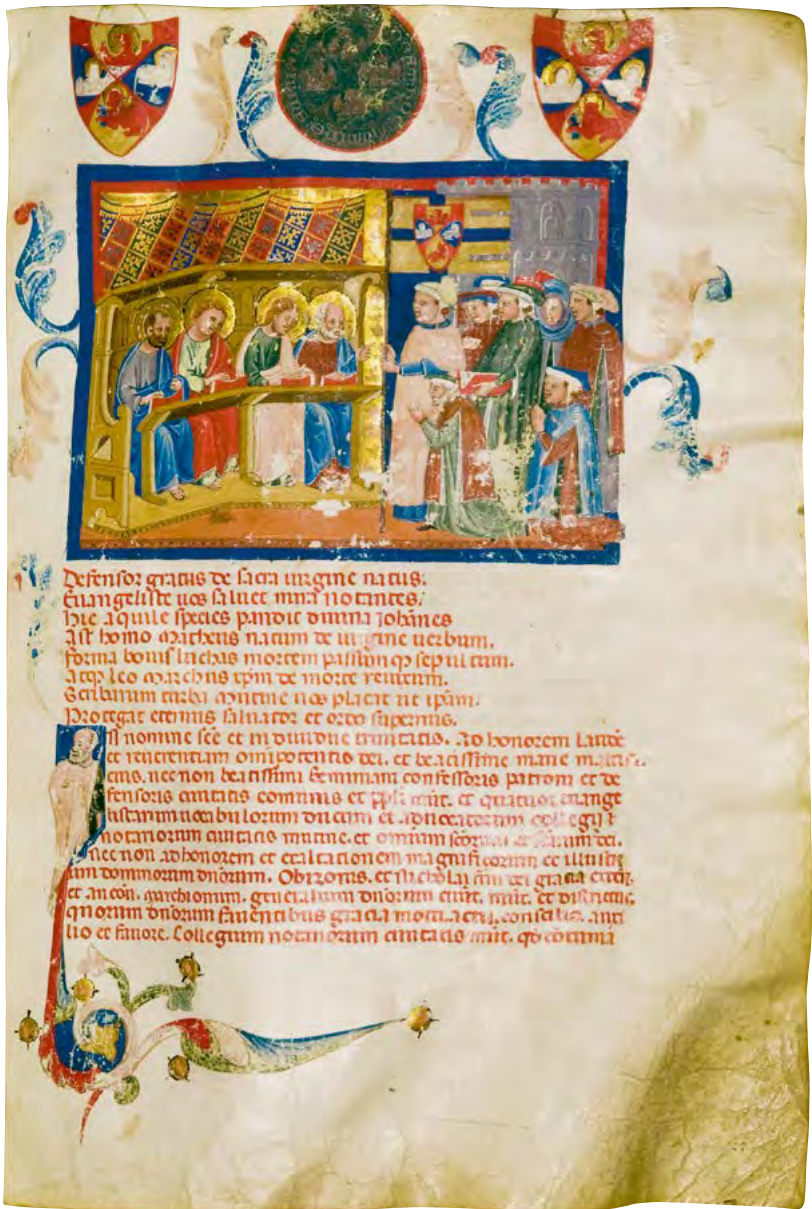 Defensor gratus de sacra uirgine natus.
Euangeliste uos saluet mira notantes.
Hic aquile species pandit diuina Iohānes
Ast homo Matheus natum de uirgine uerbum.
forma bouis luchas mortem passionqꝫ sepultum.
Atqꝫ leo Marchus ip̄m de morte
Scribarum turba Mutine uos placat ut ip̄am.
Protegat eternus saluator et ordo supernus.
In nomine sc̄e et indiuidue trinitatis. Ad honorem laudē
et reuerentiam omipotentis dei. et beatissime marie
eius. nec non beatissimi Geminiani confessoris patroni et de
fensoris ciuitatis comunis et ppl̄i mut̄. et quatuor euange
listarum uocabulorum ducum et aduocatorum collegii
notariorum ciuitatis mutine. et omnium dei.
nec non ad honorem et exaltationem magnificorum et illustri
um dominorum dn̄orum. Obizonis. et Nicholai dei gracia
et ancon. marchionum. generalium dn̄orum ciuit̄. mut̄. et districtus.
quorum dn̄orum fauentibus gracia
lio et fauore. Collegium notariorum ciuitatis mut̄.